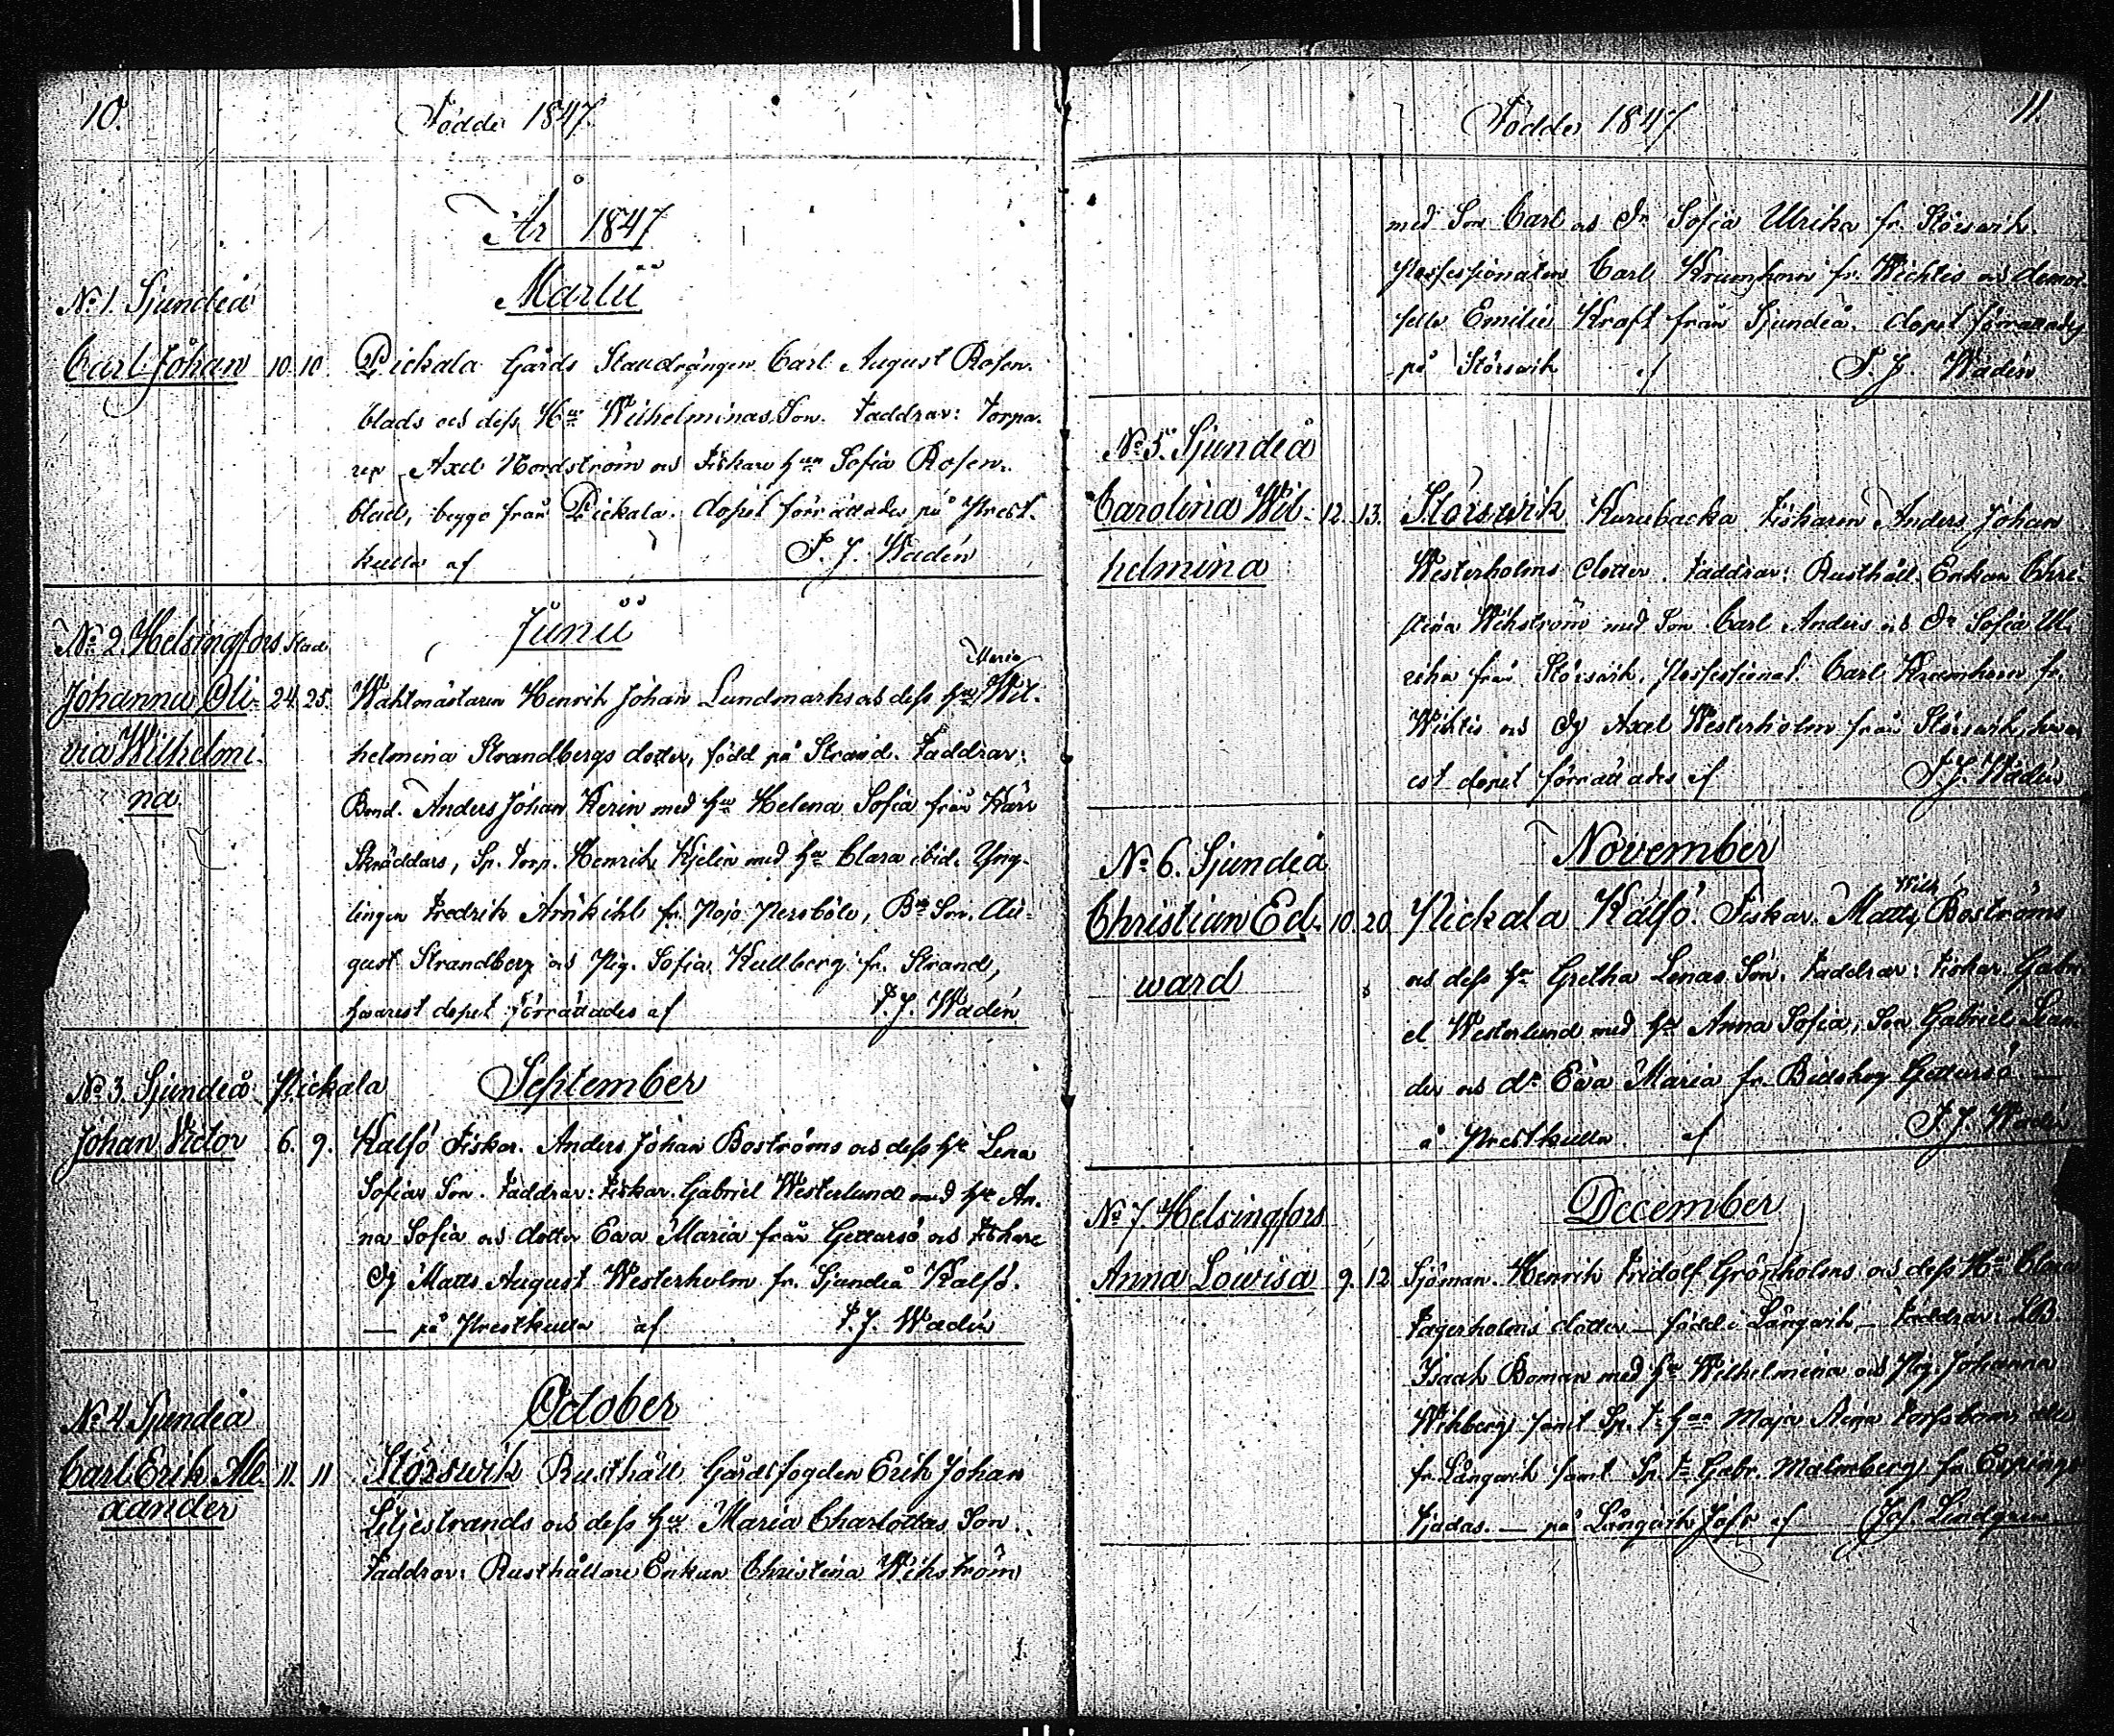 10.
Födde 1847.
År 1847
Martii
No 1. Sjundeå
Carl Johan 10. 10. Pickala Gårds Staldrängen Carl August Rosen-
blads och dess Hu Wilhelminas Son. Faddrar: Torpa-
ren Axel Nordström och Fiskare hun Sofia Rosen-
blad, begge från Pickala. dopet förrättades på Prest-
kulla af F. J. Wadén
Junii
No 2. Helsingfors Stad
Johanna Oli- 24. 25. Waktmästaren Henrik Johan Lundmarks och dess hu Maria Wil-
via Wilhelmi- helmina Strandbergs dotter, född på Strand. Faddrar:
na Bond. Anders Johan Kerin med hu Helena Sofia från Kärr
Skräddars, Sp. torp. Henrik Kjelin med hu Clara ibid. Yng-
lingen Fredrik Arnkihl fr. Pojo Persböle, Bde Son. Au-
gust Strandberg och Pig. Sofia Kullberg fr. Strand,
hvarest dopet förrättades af F. J. Wadén
September
No 3. Sjundeå Pickala
Johan Victor 6. 9. Kalfö Fiskar. Anders Johan Boströms och dess hu Lena
Sofias Son. Faddrar: Fiskar. Gabriel Westerlund med hu An-
na Sofia och dotter Eva Maria från Gettarsö och Fiskare
Dg Matts August Westerholm fr. Sjundeå Kalfö.
— på Prestkulla af F. J. Wadén
October
No 4. Sjundeå
Carl Erik Ale- 11. 11 Störswik Rusthåll Gårdsfogden Erik Johan
xander Liljestrands och dess hu Maria Charlottas Son.
Faddrar: Rusthållare Enkan Christina Wikström
11.
Födde 1847
med Son Carl och Dr Sofia Ulrika fr. Störswik.
Professionaten Carl Krumhorn fr. Wichtis och demoi-
selle Emilie Kraft från Sjundeå. dopet förrättades
på Störswik af F. J. Wadén
No 5. Sjundeå
Carolina Wil- 12. 13. Störswik Kurubacka Fiskaren Anders Johan
helmina Westerholms dotter. Faddrar: Rusthåll. Enkan Chri-
stina Wikström med Son Carl Anders och Dr Sofia Ul-
rika från Störswik, Professionat. Carl Krumhorn fr.
Wihtis och Dg Axel Westerholm från Störswik, hvar-
est dopet förrättades af F. J. Wadén
November
No 6. Sjundeå
Christian Ed- 10. 20. Pickala Kalfö. Fiskar. Matts Wilh. Boströms
ward och dess hu Gretha Lenas Son. Faddrar: Fiskar. Gabri-
el Westerlund med hu Anna Sofia, Son Gabriel
och dr Eva Maria fr. Gettarsö —
å Prestkulla af F. J. Wadén
December
No 7. Helsingfors
Anna Lowisa 9. 12 Sjöman. Henrik Fridolf Grönholms och dess Hu Clara
Fagerholms dotter — född i Långwik — Faddrar: LB.
Isaak Boman med hu Wilhelmina och Pig. Johanna
Wikberg samt Sp. T. hun Maja Stina alla
fr. Långwik samt Sp. T. Gabr. Malmberg fr.
— på Långwik af Jos. Lindgren